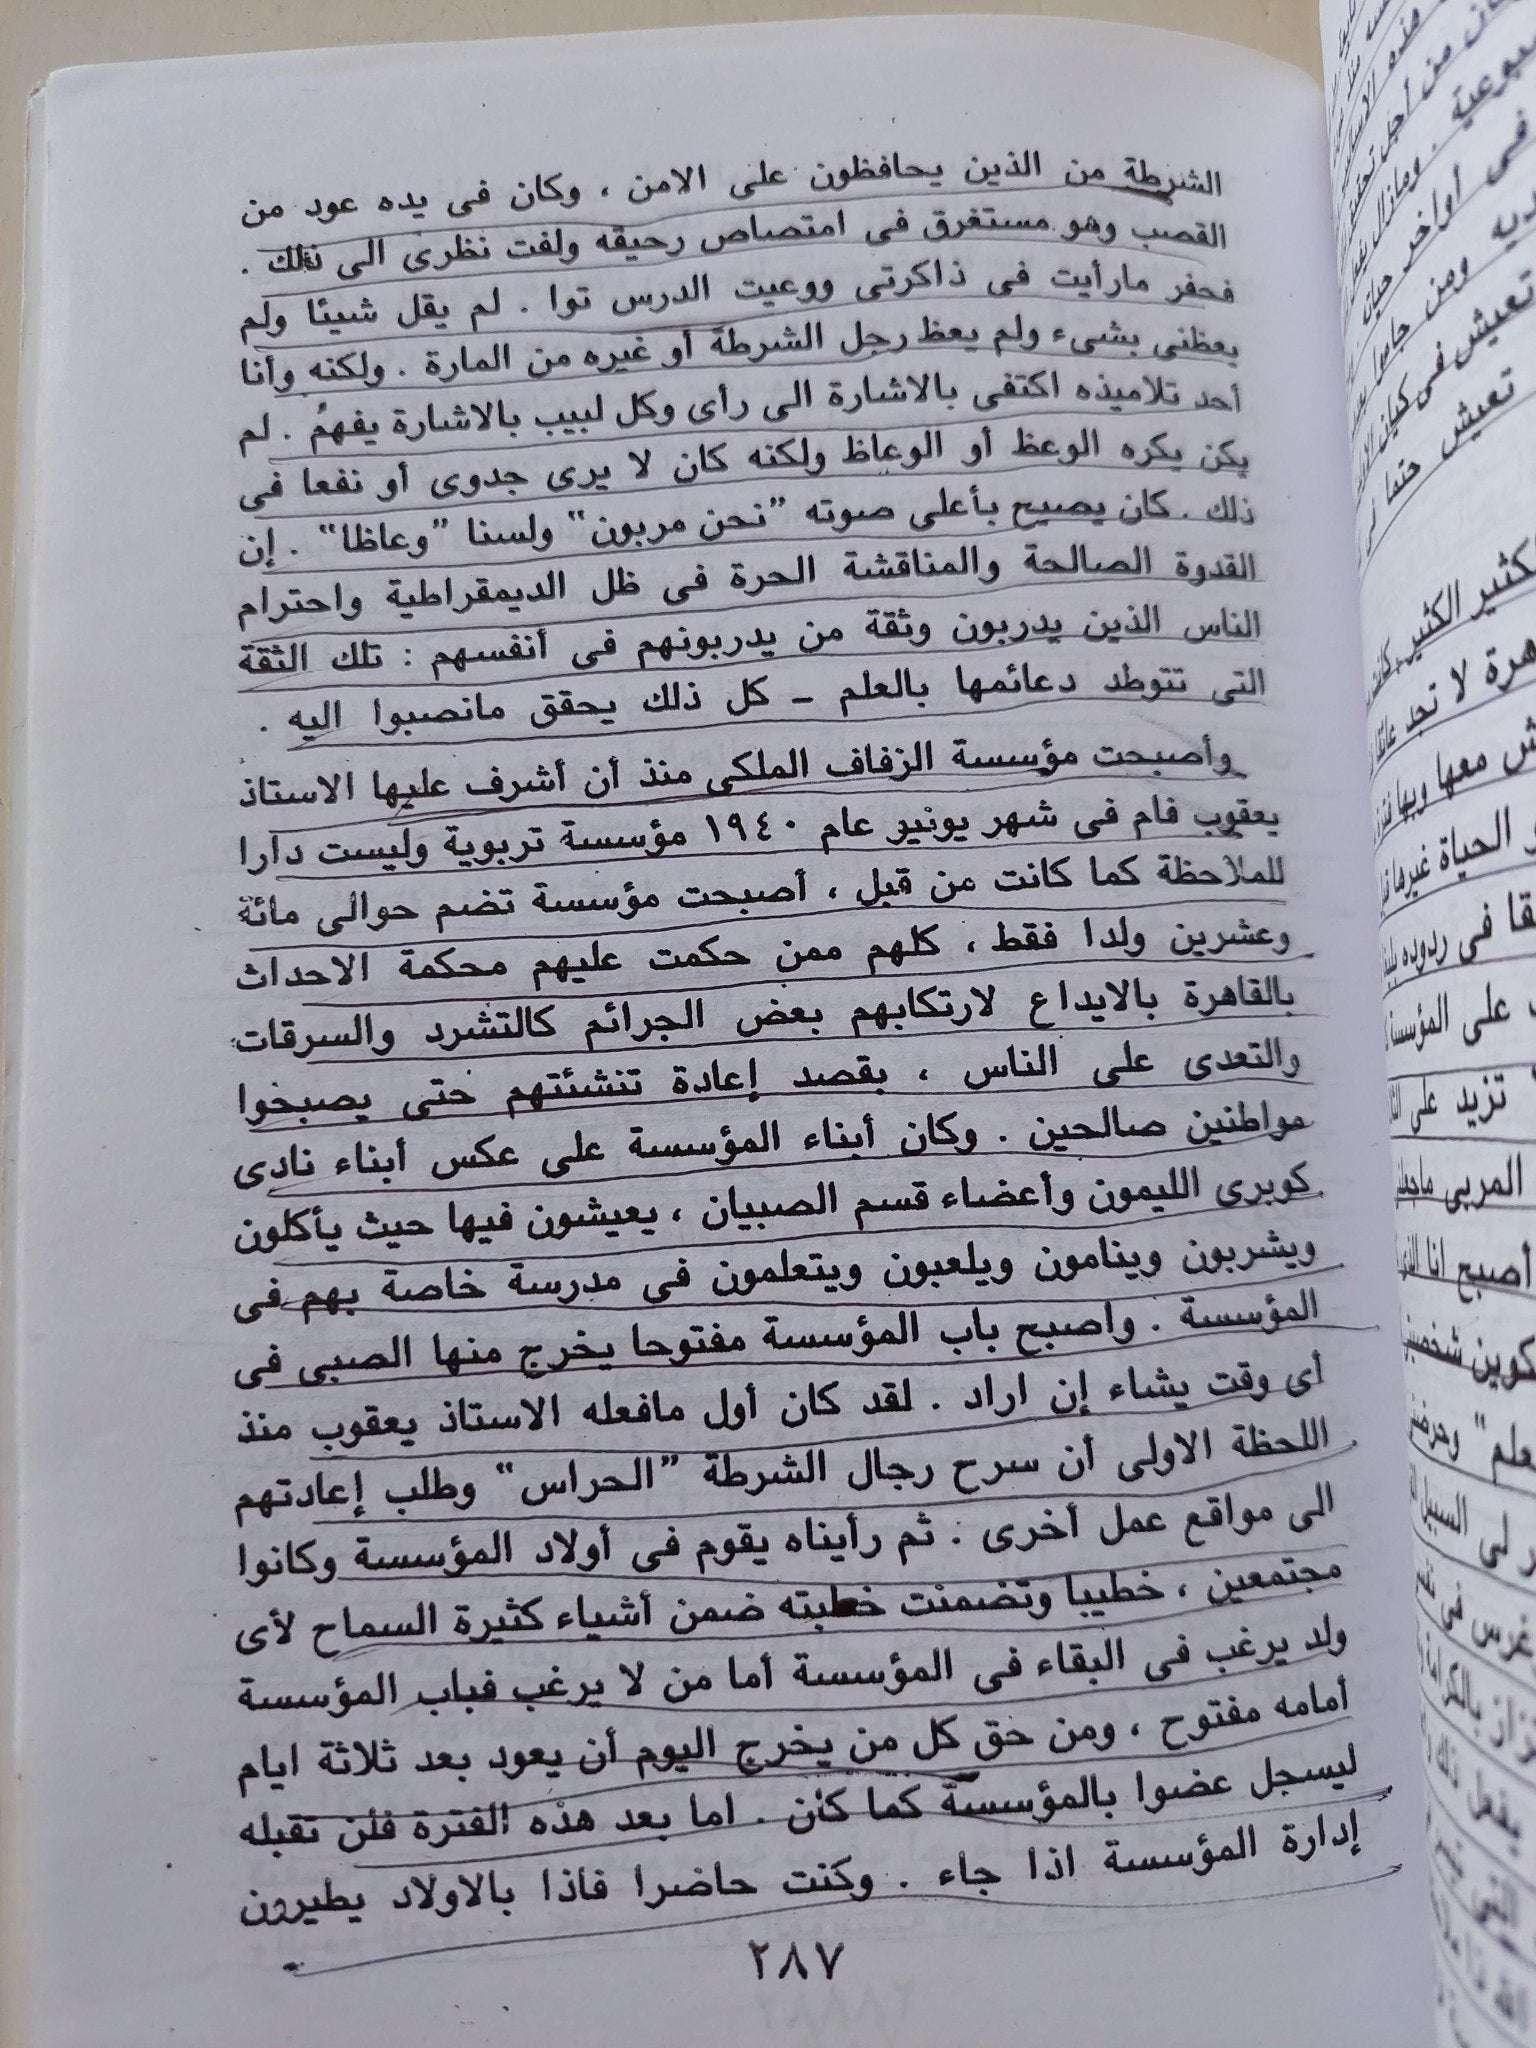 الشرطة من الذين يحافظون على الامن ، وكان فى يده عود من
القصب وهو مستغرق فى امتصاص رحيقه ولفت نظرى الى ذلك .
فحفر مارأيت فى ذاكرتى ووعيت الدرس توا . لم يقل شيئا ولم
يعظنى بشىء ولم يعظ رجل الشرطة أو غيره من المارة . ولكنه وأنا
أحد تلاميذه اكتفى بالاشارة الى رأى وكل لبيب بالاشارة يفهم . لم
يكن يكره الوعظ أو الوعاظ ولكنه كان لا يرى جدوى أو نفعا فى
ذلك . كان يصيح بأعلى صوته "نحن مربون" ولسنا "وعاظا" . إن
القدوة الصالحة والمناقشة الحرة فى ظل الديمقراطية واحترام
الناس الذين يدربون وثقة من يدربونهم فى أنفسهم : تلك الثقة
التى تتوطد دعائمها بالعلم – كل ذلك يحقق مانصبوا اليه .
وأصبحت مؤسسة الزفاف الملكى منذ أن أشرف عليها الاستاذ
يعقوب فام فى شهر يونيو عام ١٩٤٠ مؤسسة تربوية وليست دارا
للملاحظة كما كانت من قبل ، أصبحت مؤسسة تضم حوالى مائة
وعشرين ولدا فقط ، كلهم ممن حكمت عليهم محكمة الاحداث
بالقاهرة بالايداع لارتكابهم بعض الجرائم كالتشرد والسرقات
والتعدى على الناس ، بقصد إعادة تنشئتهم حتى يصبحوا
مواطنين صالحين . وكان أبناء المؤسسة على عكس أبناء نادى
كوبرى الليمون وأعضاء قسم الصبيان ، يعيشون فيها حيث يأكلون
ويشربون وينامون ويلعبون ويتعلمون فى مدرسة خاصة بهم فى
المؤسسة . واصبح باب المؤسسة مفتوحا يخرج منها الصبى فى
أى وقت يشاء إن اراد . لقد كان أول مافعله الاستاذ يعقوب منذ
اللحظة الاولى أن سرح رجال الشرطة "الحراس" وطلب إعادتهم
الى مواقع عمل أخرى . ثم رأيناه يقوم فى أولاد المؤسسة وكانوا
مجتمعين ، خطيبا وتضمنت خطبته ضمن أشياء كثيرة السماح لأى
ولد يرغب فى البقاء فى المؤسسة أما من لا يرغب فباب المؤسسة
أمامه مفتوح ، ومن حق كل من يخرج اليوم أن يعود بعد ثلاثة ايام
ليسجل عضوا بالمؤسسة كما كان . اما بعد هذه الفترة فلن تقبله
إدارة المؤسسة اذا جاء . وكنت حاضرا فاذا بالاولاد يطيرون
٢٨٧